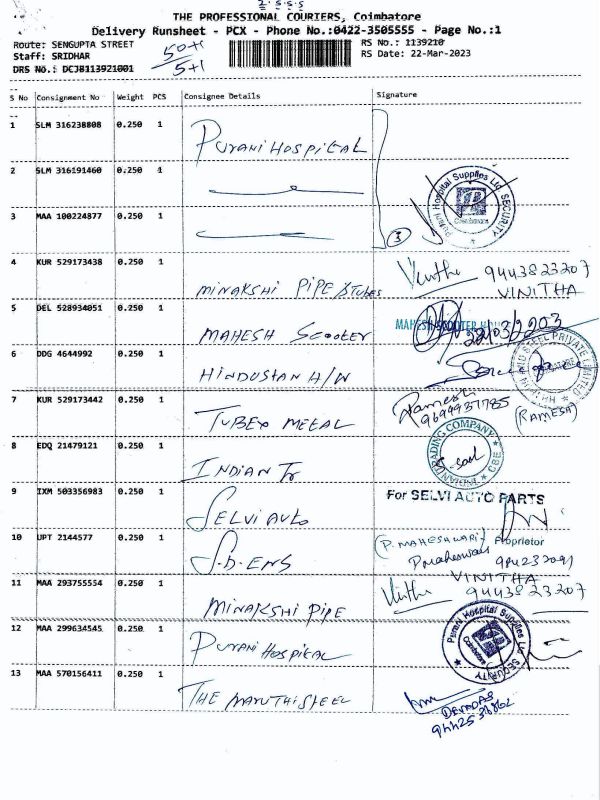 2.5.5.5
THE PROFESSIONAL COURIERS, Coimbatore
Delivery Runsheet - PCX - Phone No.:0422-3505555 - Page No.:1
Route: SENGUPTA STREET 50+1 RS No.: 1139210
Staff: SRIDHAR 5+1 RS Date: 22-Mar-2023
DRS No.: DCJB113921001
S No Consignment No Weight PCS Consignee Details Signature
1 SLM 316238808 0.250 1 PURANI HOSPITAL
2 SLM 316191460 0.250 1 Purani Hospital Supplies Ltd SECURITY Coimbatore
3 MAA 100224877 0.250 1 3
4 KUR 529173438 0.250 1 MINAKSHI PIPE & TUBES Vinitha 9443823207
VINITHA
5 DEL 528934051 0.250 1 MAHESH SCOOTER MAHESH SCOOTER 22/03/2203
6 DDG 4644992 0.250 1 HINDUSTAN H/W
7 KUR 529173442 0.250 1 TUBEX METAL Ramesh
(RAMESH)
8 EDQ 21479121 0.250 1 INDIAN Tr INDIAN TRADING COMPANY CBE
9 IXM 503356983 0.250 1 SELVI AUTO For SELVI AUTO PARTS
10 UPT 2144577 0.250 1 S.D. ENS (P. MAHESHWARI) Proprietor
11 MAA 293755554 0.250 1 MINAKSHI PIPE VINITHA
Vinitha 9443823207
12 MAA 299634545 0.250 1 PURANI HOSPITAL Purani Hospital Supplies Ltd SECURITY Coimbatore
13 MAA 570156411 0.250 1 THE MARUTHI STEEL
DEVADAS